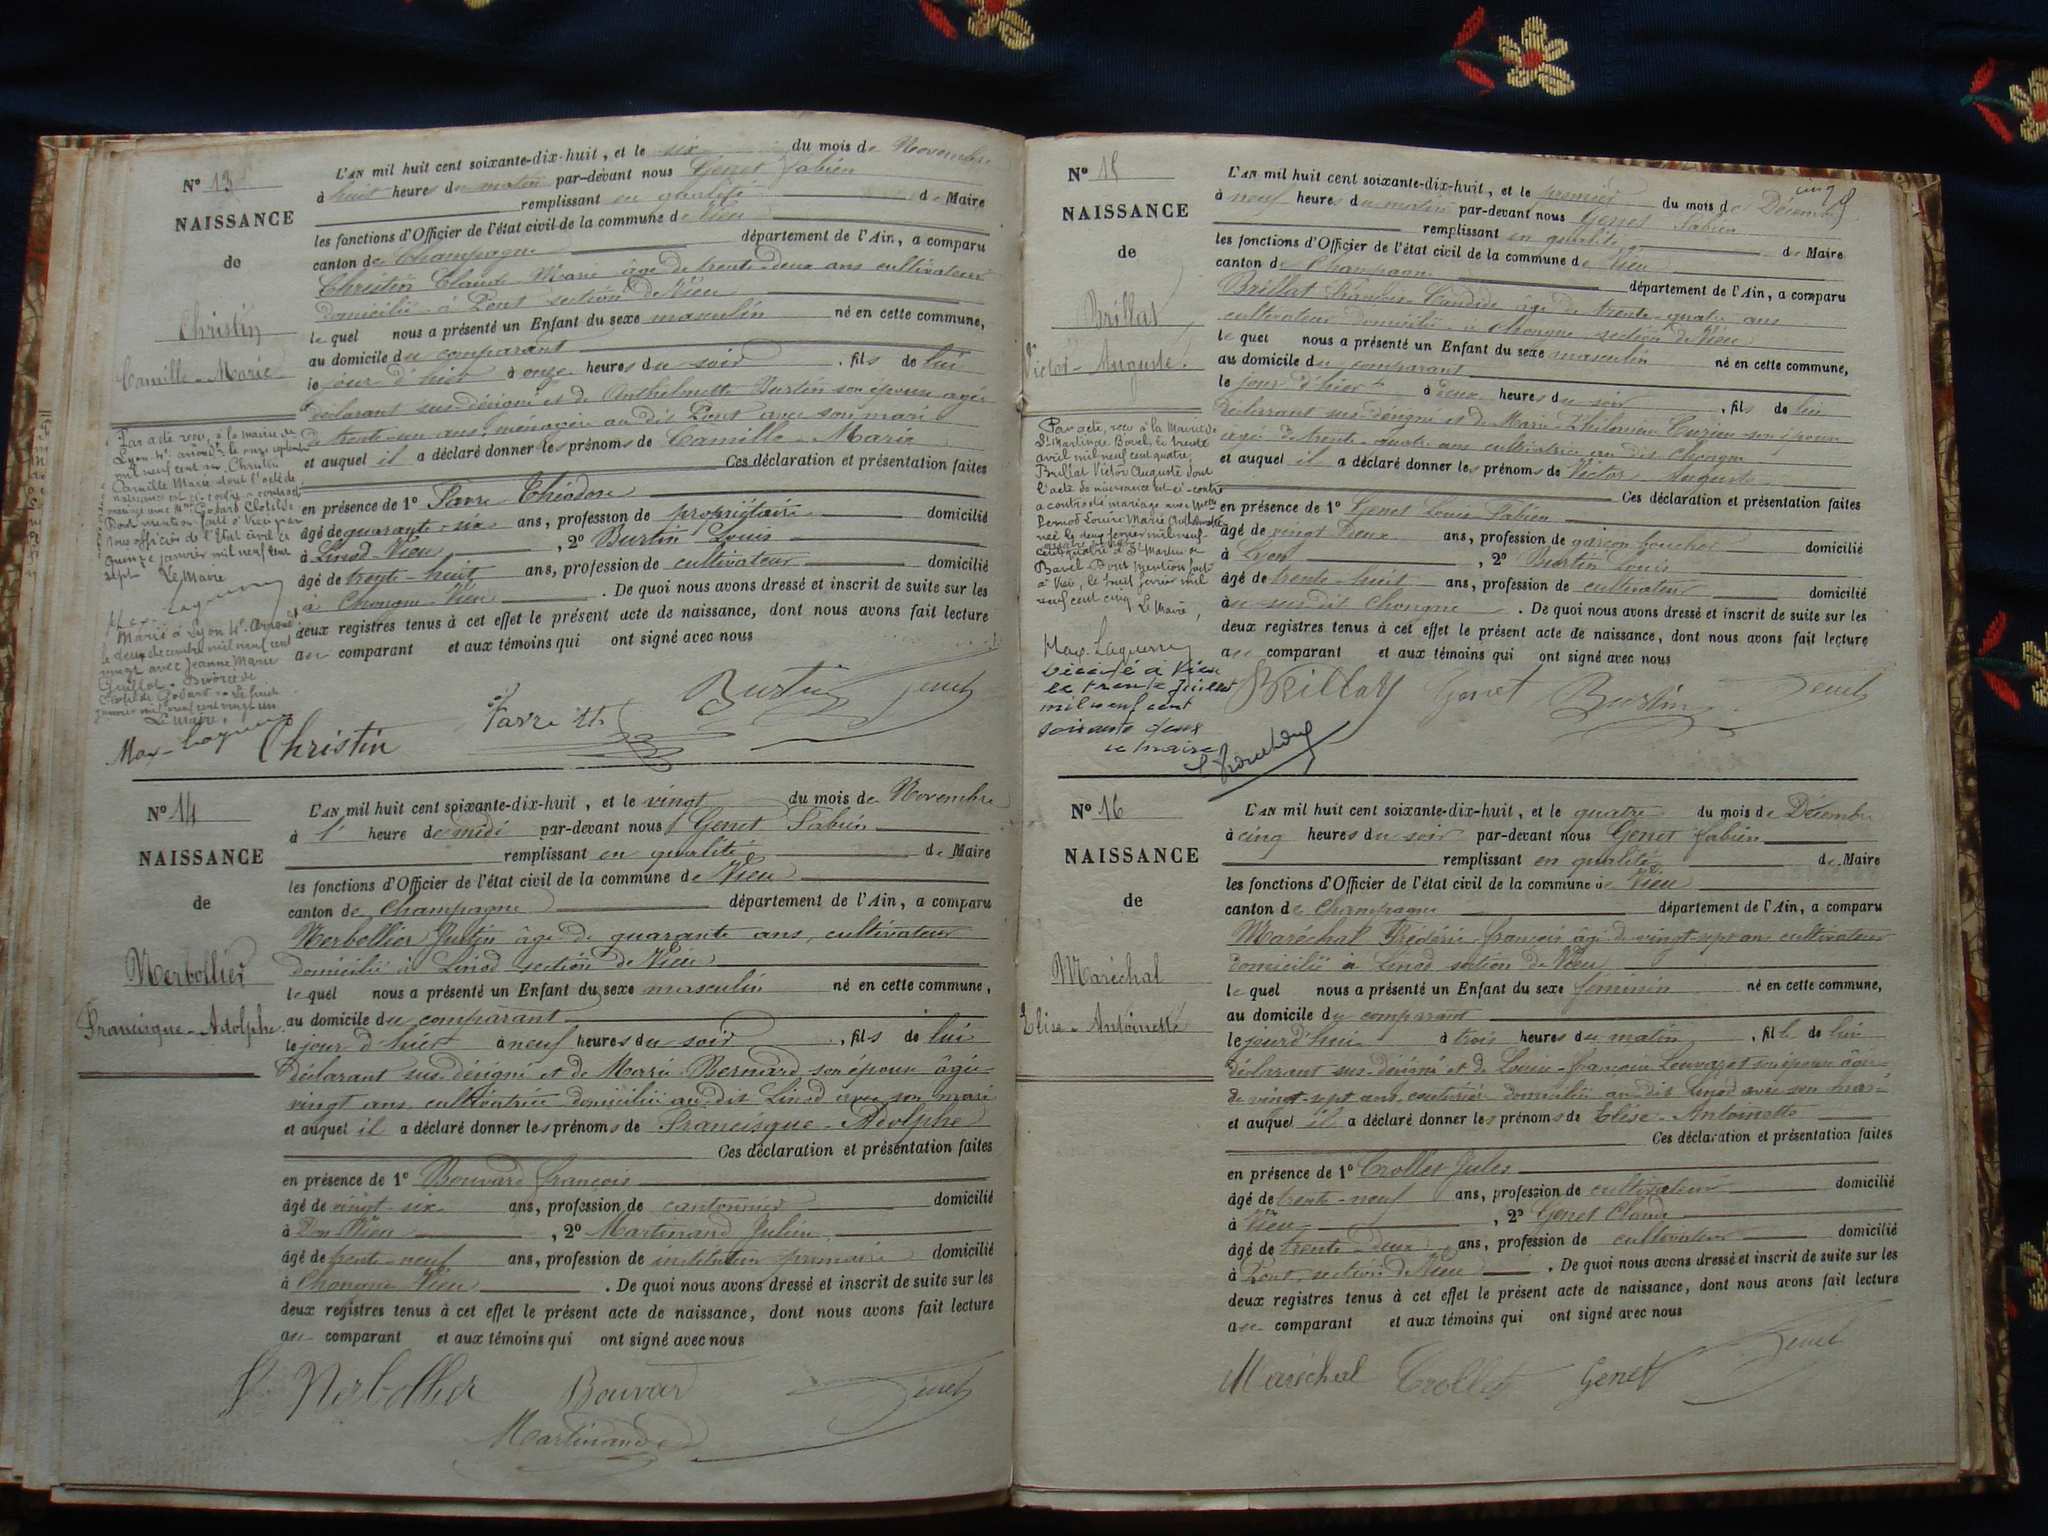 N° 13
NAISSANCE
de
Christin
Camille-Marie
L'AN mil huit cent soixante-dix-huit, et le six du mois de Novembre
à huit heures du matin par-devant nous Genet Fabien
remplissant en qualité de Maire
les fonctions d'Officier de l'état civil de la commune de Vieu
canton de Champagne département de l'Ain, a comparu
Christin Claude-Marie âgé de trente-deux ans cultivateur
domicilié à Pont section de Vieu
le quel nous a présenté un Enfant du sexe masculin né en cette commune,
au domicile du comparant
le jour d'hier à onze heures du soir, fils de lui
déclarant sus-désigné et de Anthelmette Burtin son épouse âgée
de trente-un ans, ménagère au dit Pont avec son mari
et auquel il a déclaré donner les prénoms de Camille-Marie
Ces déclaration et présentation faites
en présence de 1° Favre Théodore
âgé de quarante-six ans, profession de propriétaire domicilié
à Linod Vieu, 2° Burtin Louis
âgé de trente-huit ans, profession de cultivateur domicilié
à Chongne-Vieu. De quoi nous avons dressé et inscrit de suite sur les
deux registres tenus à cet effet le présent acte de naissance, dont nous avons fait lecture
au comparant et aux témoins qui ont signé avec nous
Par acte reçu à la mairie de
Lyon 4e arrond.t le onze septembre
mil neuf cent six, Christin
Camille Marie dont l'acte de
naissance est ci-contre a contracté
mariage avec Mme Gobard Clotilde
Dont mention faite à Vieu par
nous officier de l'Etat civil le
quinze janvier mil neuf cent
sept Le Maire
Marié à Lyon 4e arrond.t
le deux décembre mil neuf cent
vingt avec Jeanne Marie
Guillot. Divorcé de
Clotilde Gobard. Le huit
janvier mil neuf cent vingt un
Le Maire,
Max-Laguerre
Christin Favre Th Burtin Genet
N° 14
NAISSANCE
de
Nerbollier
Francisque-Adolphe
L'AN mil huit cent soixante-dix-huit, et le vingt du mois de Novembre
à l' heure de midi par-devant nous Genet Fabien
remplissant en qualité de Maire
les fonctions d'Officier de l'état civil de la commune de Vieu
canton de Champagne département de l'Ain, a comparu
Nerbollier Justin âgé de quarante ans, cultivateur
domicilié à Linod section de Vieu
le quel nous a présenté un Enfant du sexe masculin né en cette commune,
au domicile du comparant
le jour d'hier à neuf heures du soir, fils de lui
déclarant sus-désigné et de Marie Bernard son épouse âgée
vingt ans cultivatrice domiciliée au dit Linod avec son mari
et auquel il a déclaré donner les prénoms de Francisque-Adolphe
Ces déclaration et présentation faites
en présence de 1° Bouvard François
âgé de vingt six ans, profession de cantonnier domicilié
à Don Vieu, 2° Martinand Julien
âgé de trente-neuf ans, profession de instituteur primaire domicilié
à Chongne Vieu. De quoi nous avons dressé et inscrit de suite sur les
deux registres tenus à cet effet le présent acte de naissance, dont nous avons fait lecture
au comparant et aux témoins qui ont signé avec nous
Nerbollier Bouvard Genet
Martinand
N° 15
NAISSANCE
de
Brillat
Victor-Auguste
L'AN mil huit cent soixante-dix-huit, et le premier du mois de Décembre
à neuf heures du matin par-devant nous Genet Fabien
remplissant en qualité de Maire
les fonctions d'Officier de l'état civil de la commune de Vieu
canton de Champagne département de l'Ain, a comparu
Brillat François-Candide âgé de trente-quatre ans
cultivateur domicilié à Chongne section de Vieu
le quel nous a présenté un Enfant du sexe masculin né en cette commune,
au domicile du comparant
le jour d'hier à deux heures du soir, fils de lui
déclarant sus-désigné et de Marie-Philomène son épouse
âgée de trente-quatre ans cultivatrice au dit Chongne
et auquel il a déclaré donner les prénoms de Victor-Auguste
Ces déclaration et présentation faites
en présence de 1° Genet Louis Fabien
âgé de vingt Deux ans, profession de garçon boucher domicilié
à Lyon, 2° Burtin Louis
âgé de trente-huit ans, profession de cultivateur domicilié
au susdit Chongne. De quoi nous avons dressé et inscrit de suite sur les
deux registres tenus à cet effet le présent acte de naissance, dont nous avons fait lecture
au comparant et aux témoins qui ont signé avec nous
Par acte, reçu à la Mairie de
St Martin de Bavel, le trente
avril mil neuf cent quatre,
Brillat Victor Auguste dont
l'acte de naissance est ci-contre
a contracté mariage avec Melle
Pernod Louise Marie
née le deux février mil neuf
cent quatre à St Martin de
Bavel. Dont mention faite
à Vieu, le huit février mil
neuf cent cinq Le Maire,
Max. Laguerre
Décédé à Vieu
le trente Juillet
mil neuf cent
soixante deux
Le Maire
Brillat Genet Burtin Genet
N° 16
NAISSANCE
de
Maréchal
Elise-Antoinette
L'AN mil huit cent soixante-dix-huit, et le quatre du mois de Décembre
à cinq heures du soir par-devant nous Genet Fabien
remplissant en qualité de Maire
les fonctions d'Officier de l'état civil de la commune de Vieu
canton de Champagne département de l'Ain, a comparu
Maréchal Frédéric-François âgé de vingt-sept ans cultivateur
domicilié à Linod section de Vieu
le quel nous a présenté un Enfant du sexe féminin né en cette commune,
au domicile du comparant
le jourd'hui à trois heures du matin, fille de lui
déclarant sus-désigné et de Louise-Françoise son épouse âgée
de vingt-sept ans couturière domiciliée au dit Linod avec son mari
et auquel il a déclaré donner les prénoms de Elise-Antoinette
Ces déclaration et présentation faites
en présence de 1° Trollet Jules
âgé de trente-neuf ans, profession de cultivateur domicilié
à Vieu, 2° Genet Claude
âgé de trente-deux ans, profession de cultivateur domicilié
à Pont, section de Vieu. De quoi nous avons dressé et inscrit de suite sur les
deux registres tenus à cet effet le présent acte de naissance, dont nous avons fait lecture
au comparant et aux témoins qui ont signé avec nous
Maréchal Trollet Genet Genet